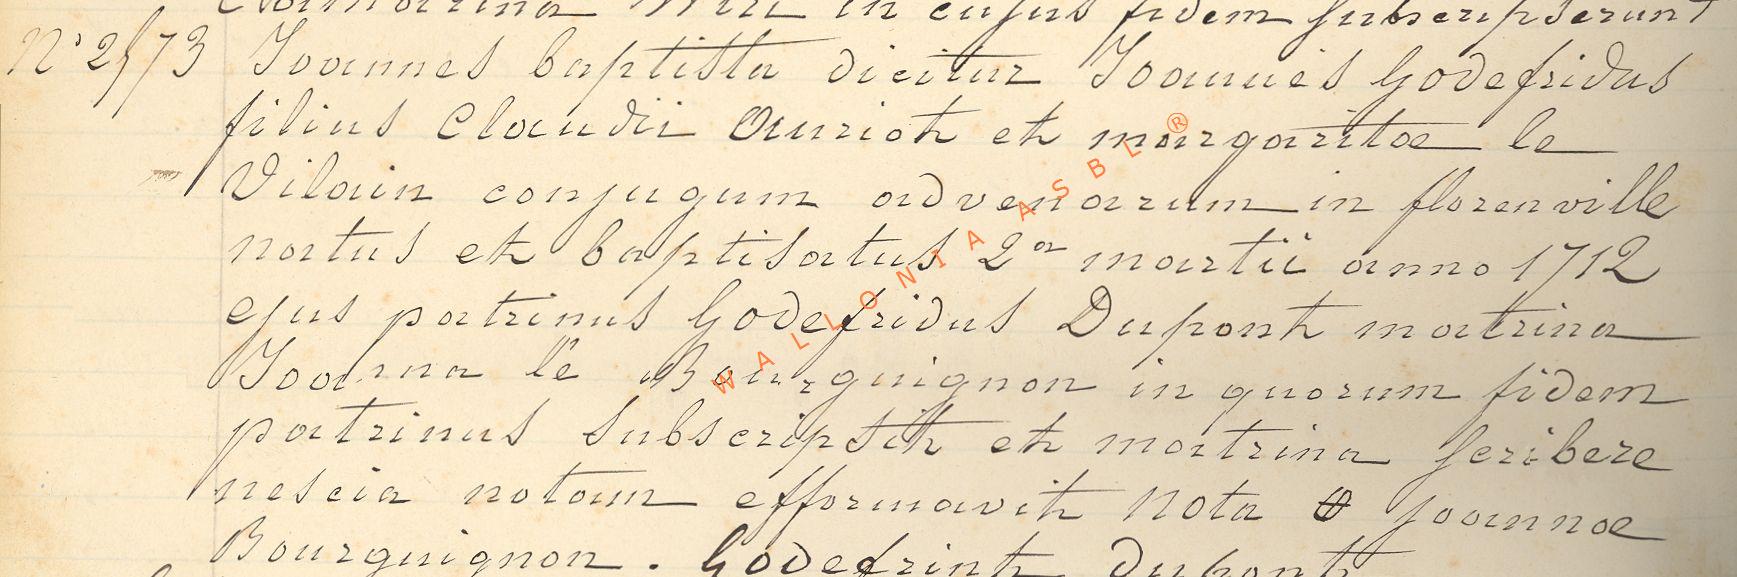 in cujus fidem subscripserunt
N° 2573 Joannes baptista dicitur Joannes Godefridus
filius Claudii Auriot et margaritae le
Vilain conjugum advenarum in florenville
natus et baptisatus 2a martii anno 1712
ejus patrinus Godefridus Dupont matrina
Joanna le Bourguignon in quorum fidem
patrinus subscripsit et matrina scribere
nescia notam efformavit Nota Joannae
Bourguignon. Godefrint Dupont
WALLONIA ASBL ®